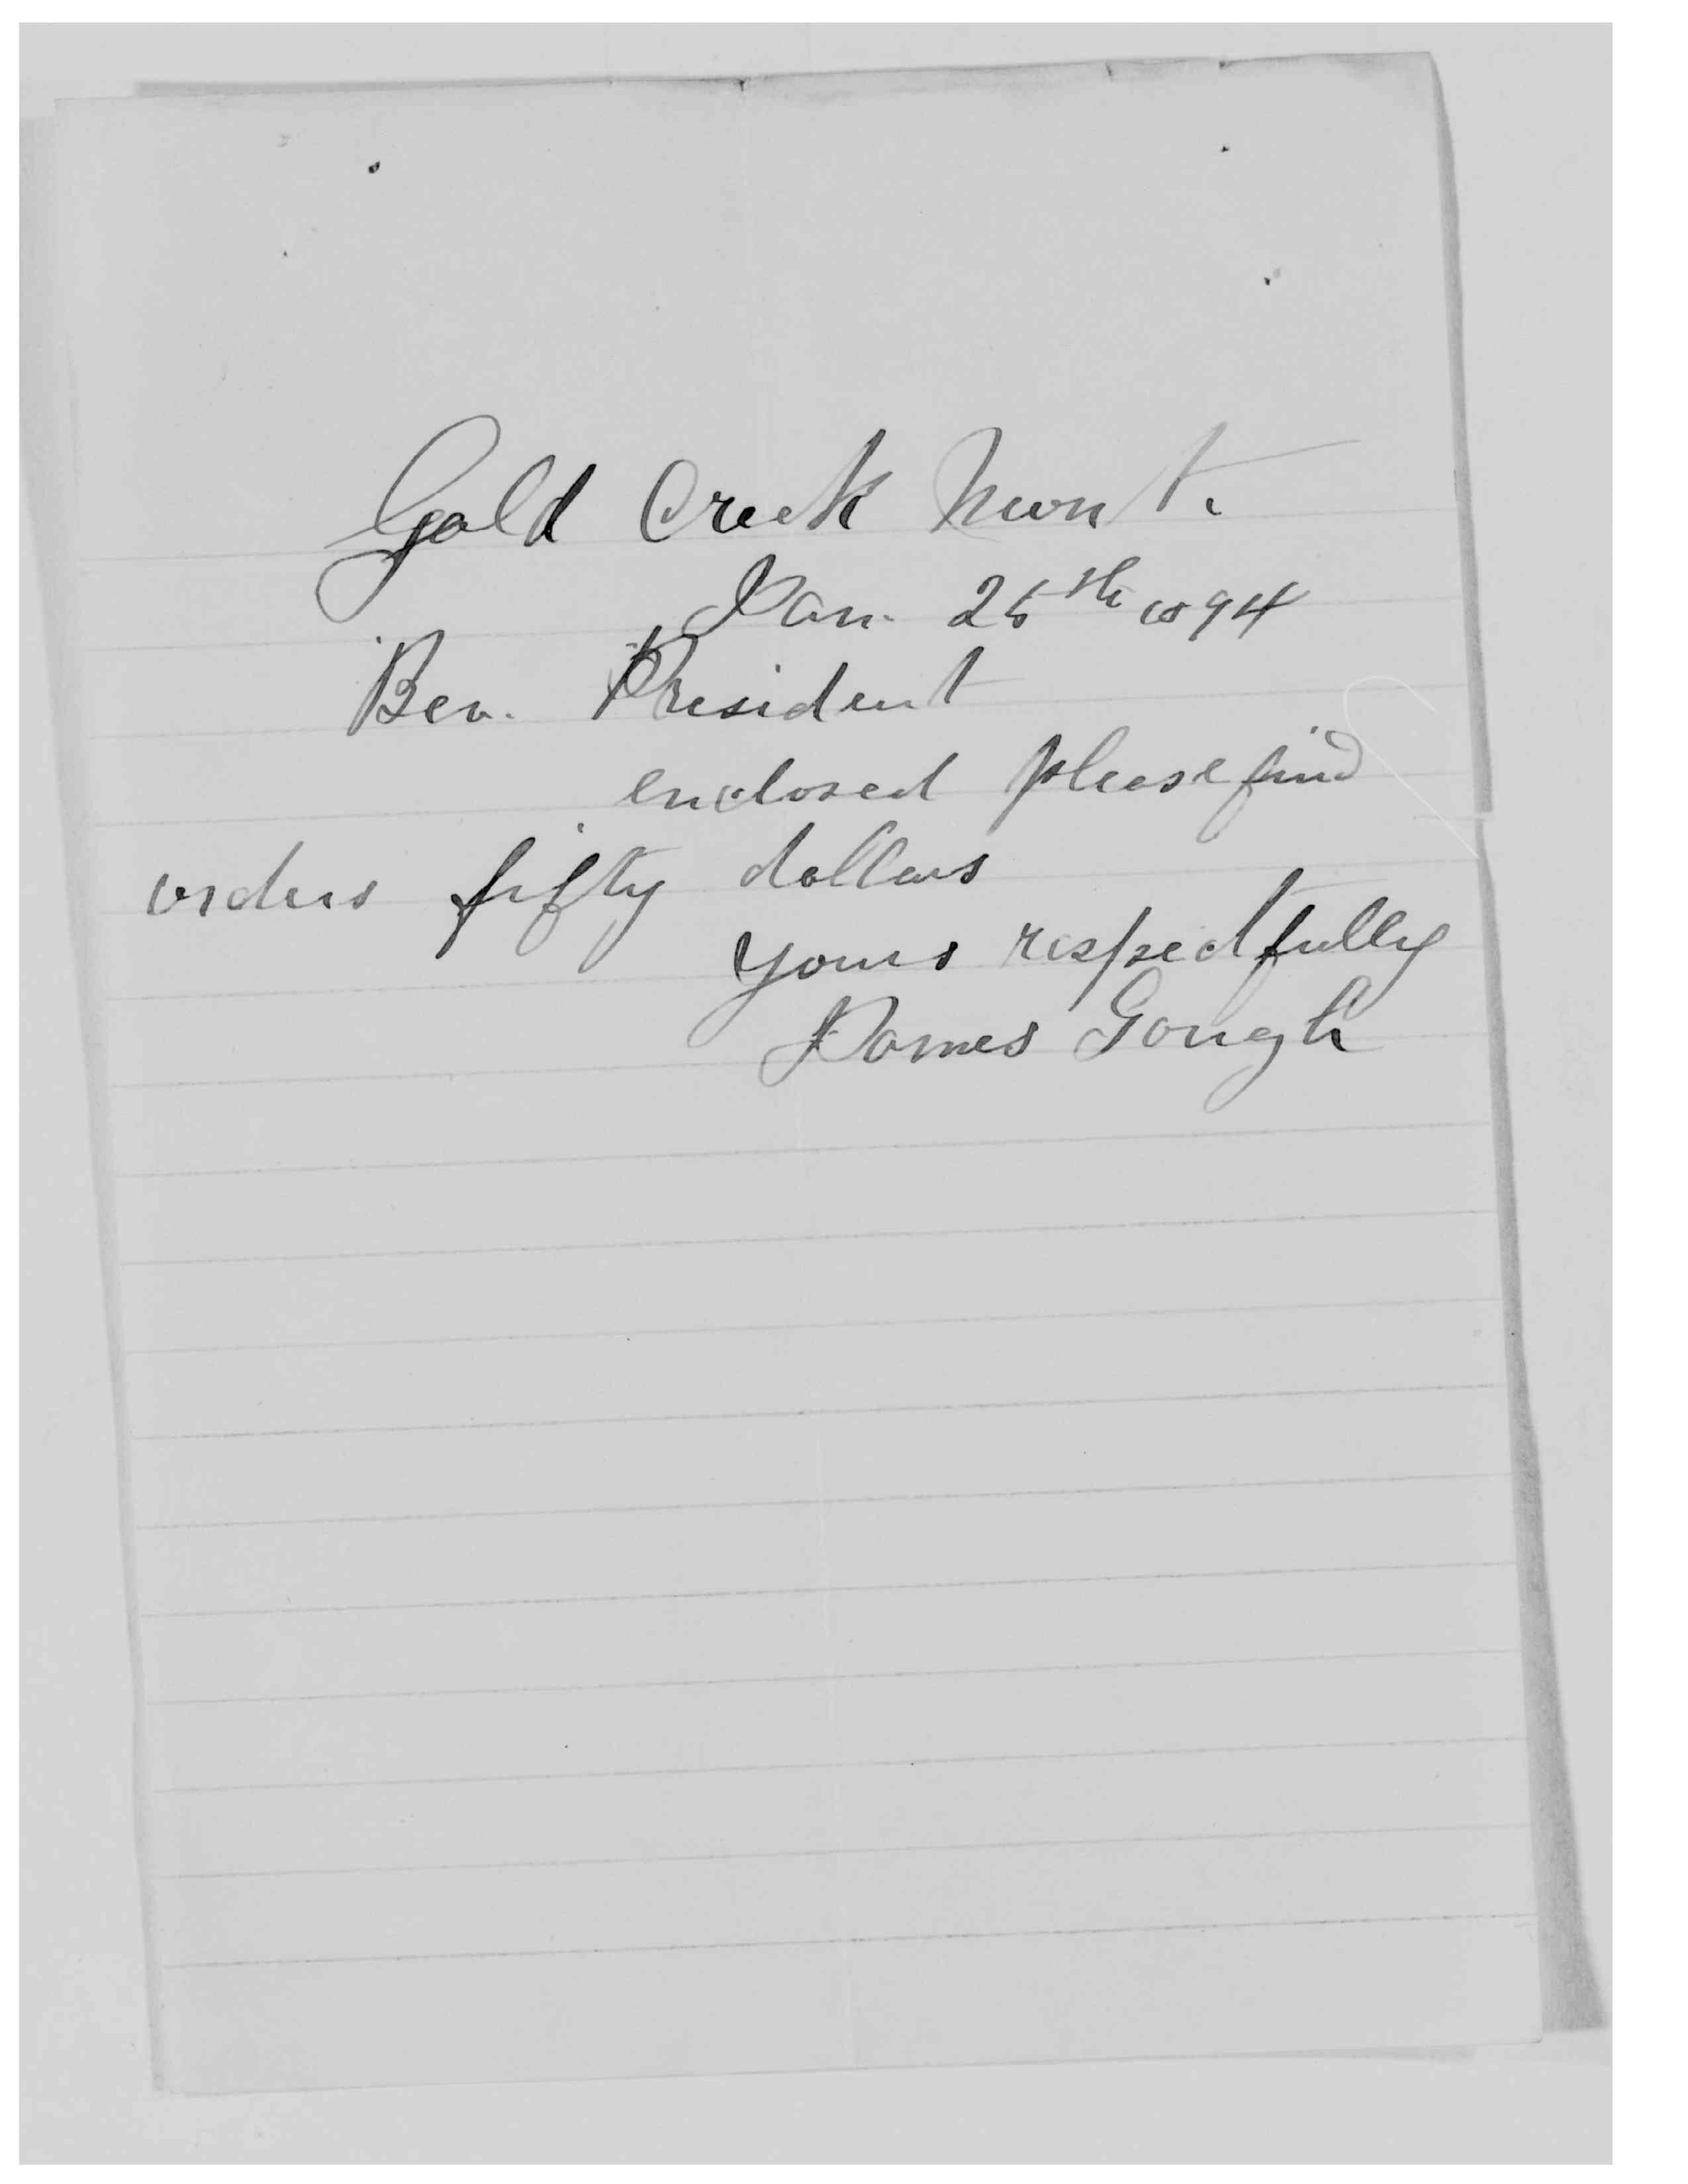 Gold Creek Mont.
Jan. 25th 1894
Rev. President
enclosed please find
orders fifty dollars
yours respectfully
James Gough